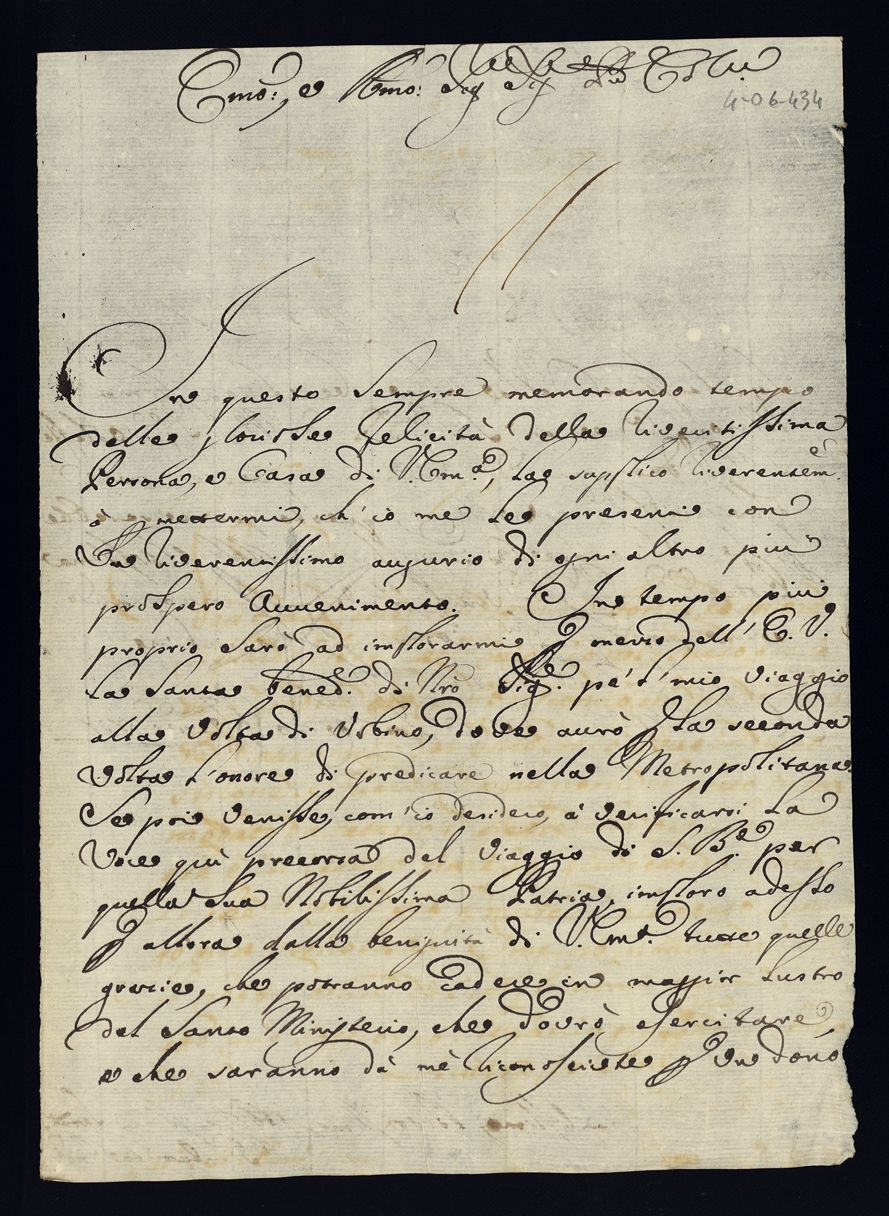 Emo:, e Rmo: Sig Sig Pro Colmo
4-06-434
In questo sempre memorando tempo
delle floride felicità della riveritissima
Persona, e Casa di V. Emã, La supplico riverentem.e
à mettermi, ch'io me Le presenti con
Un riverentissimo augurio di ogni altro più
prospero Auuenimento. In tempo più
proprio sarò ad implorarmi p mezzo dell' E. V.
La Santa bened.e di Nrõ Sig.re pe 'l mio viaggio
alla volta di Urbino, dove aurò p La seconda
volta L'onore di predicare nella Metropolitana.
Se poi venisse, com'io desidero, à verificarsi La
Voce quì precorsa del viaggio di S. B.e per
quella sua Nobilissima Patria, imploro adesso
p allora dalla benignità di V. Emã. tutte quelle
grazie, che potranno cadere in maggior Lustro
del Santo Ministerio, che dovrò esercitare,
e che saranno dà mè riconosciute p un dono